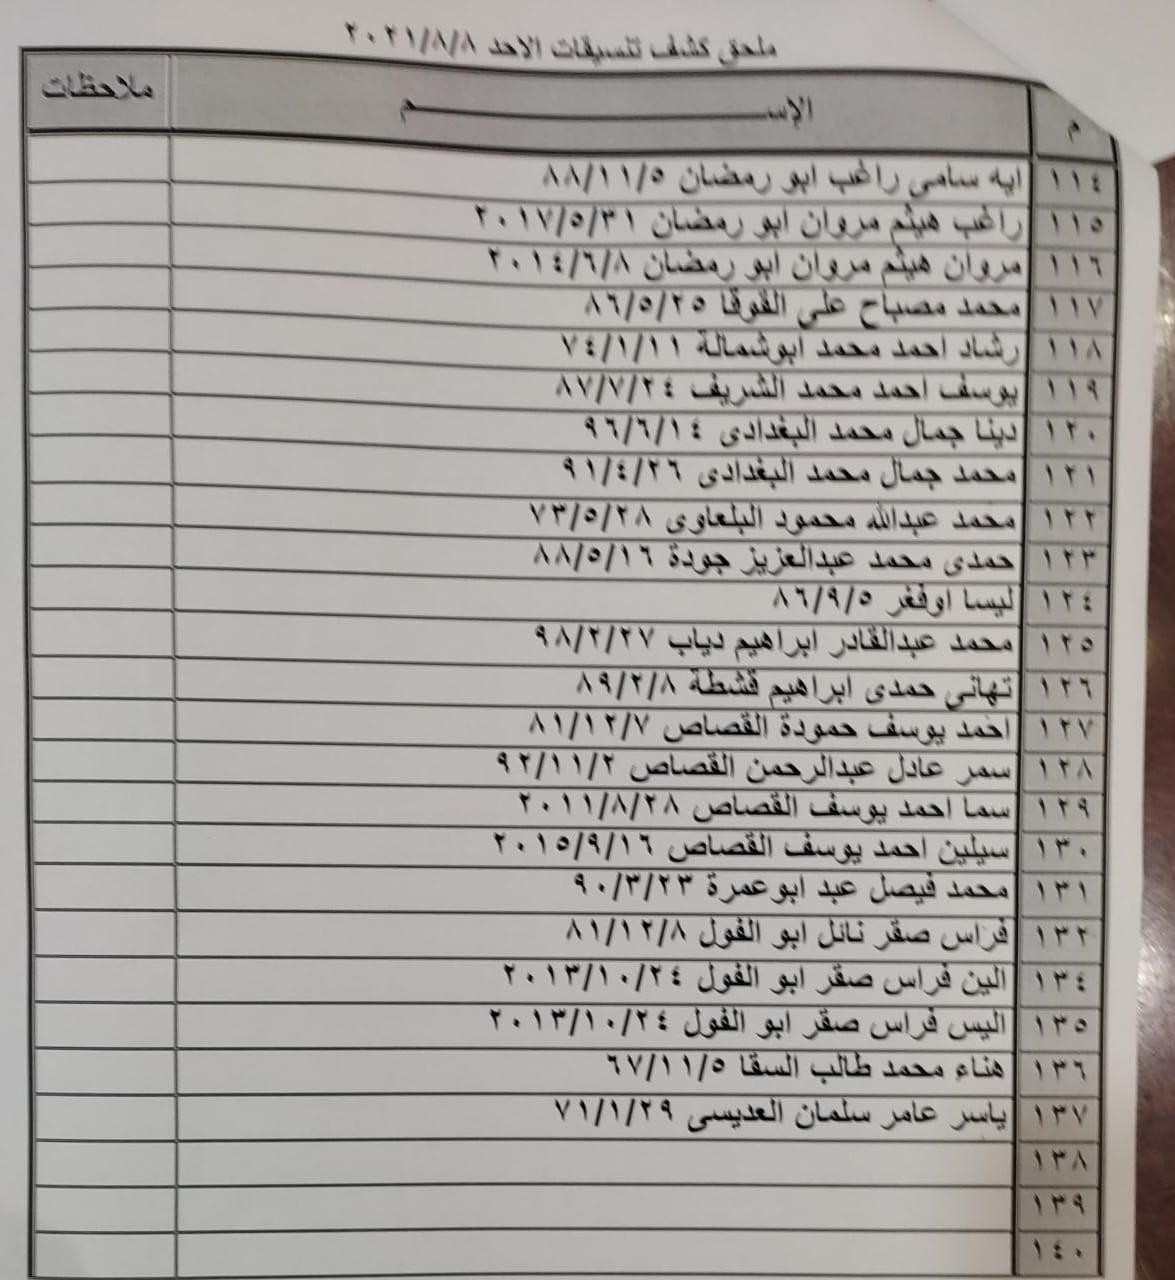 ملحق كشف تنسيقات الاحد ٢٠٢١/٨/٨
م الإســـــــم ملاحظات
١١٤ ايه سامى راغب ابو رمضان ٨٨/١١/٥
١١٥ راغب هيثم مروان ابو رمضان ٢٠١٧/٥/٣١
١١٦ مروان هيثم مروان ابو رمضان ٢٠١٤/٦/٨
١١٧ محمد مصباح على القوقا ٨٦/٥/٢٥
١١٨ رشاد احمد محمد ابوشمالة ٧٤/١/١١
١١٩ يوسف احمد محمد الشريف ٨٧/٧/٢٤
١٢٠ دينا جمال محمد البغدادى ٩٦/٦/١٤
١٢١ محمد جمال محمد البغدادى ٩١/٤/٢٦
١٢٢ محمد عبدالله محمود البلعاوى ٧٣/٥/٢٨
١٢٣ حمدى محمد عبدالعزيز جودة ٨٨/٥/١٦
١٢٤ ليسا اوفغر ٨٦/٩/٥
١٢٥ محمد عبدالقادر ابراهيم دياب ٩٨/٢/٢٧
١٢٦ تهانى حمدى ابراهيم قشطة ٨٩/٢/٨
١٢٧ احمد يوسف حمودة القصاص ٨١/١٢/٧
١٢٨ سمر عادل عبدالرحمن القصاص ٩٢/١١/٢
١٢٩ سما احمد يوسف القصاص ٢٠١١/٨/٢٨
١٣٠ سيلين احمد يوسف القصاص ٢٠١٥/٩/١٦
١٣١ محمد فيصل عبد ابوعمرة ٩٠/٣/٢٣
١٣٢ فراس صقر نائل ابو الفول ٨١/١٢/٨
١٣٤ الين فراس صقر ابو الفول ٢٠١٣/١٠/٢٤
١٣٥ اليس فراس صقر ابو الفول ٢٠١٣/١٠/٢٤
١٣٦ هناء محمد طالب السقا ٦٧/١١/٥
١٣٧ ياسر عامر سلمان العديسى ٧١/١/٢٩
١٣٨
١٣٩
١٤٠